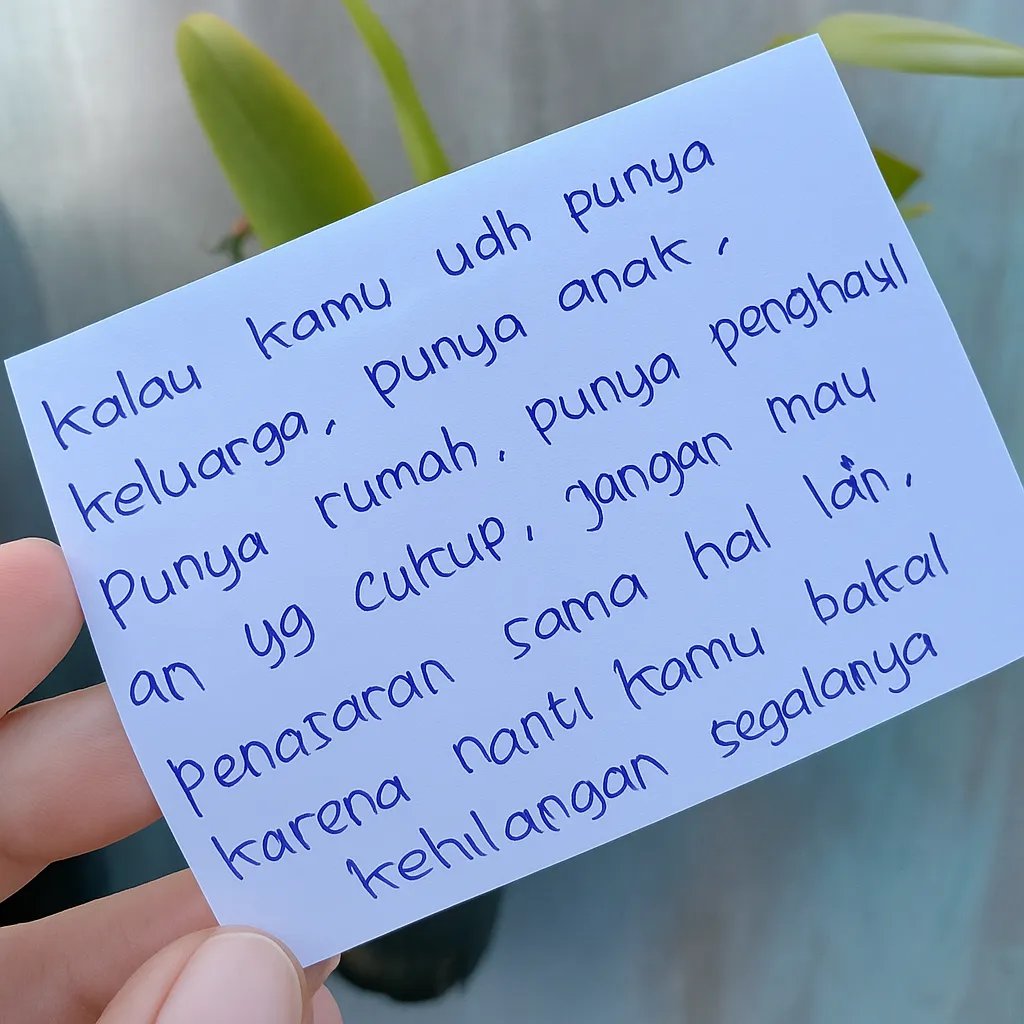 kalau kamu udh punya
keluarga, punya anak,
Punya rumah, punya penghasil
an yg cukup, jangan mau
penasaran sama hal lain,
karena nanti kamu bakal
kehilangan segalanya